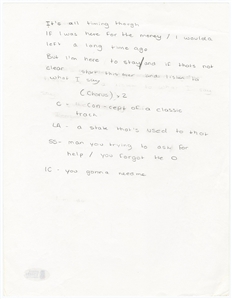 It's all timing though
If I was here for the money / I would've
left a long time ago
But I'm here to stay and if that's not
clear
what I say
(Chorus) x 2
C - Concept of a classic
track
LA - a state that's used to that
SS - man you trying to ask for
help / you forgot the O
IC - you gonna